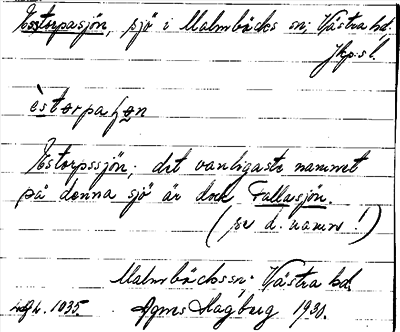 Estorpasjön, sjö i Malmbäcks sn; Västra hd.
Jkp.s l.
èstorpaʃøn
Estorpssjön; det vanligaste namnet
på denna sjö är dock Fallasjön.
(se d. namn!)
Malmbäcks sn. Västra hd.
1035. Agnes Hagberg 1930.